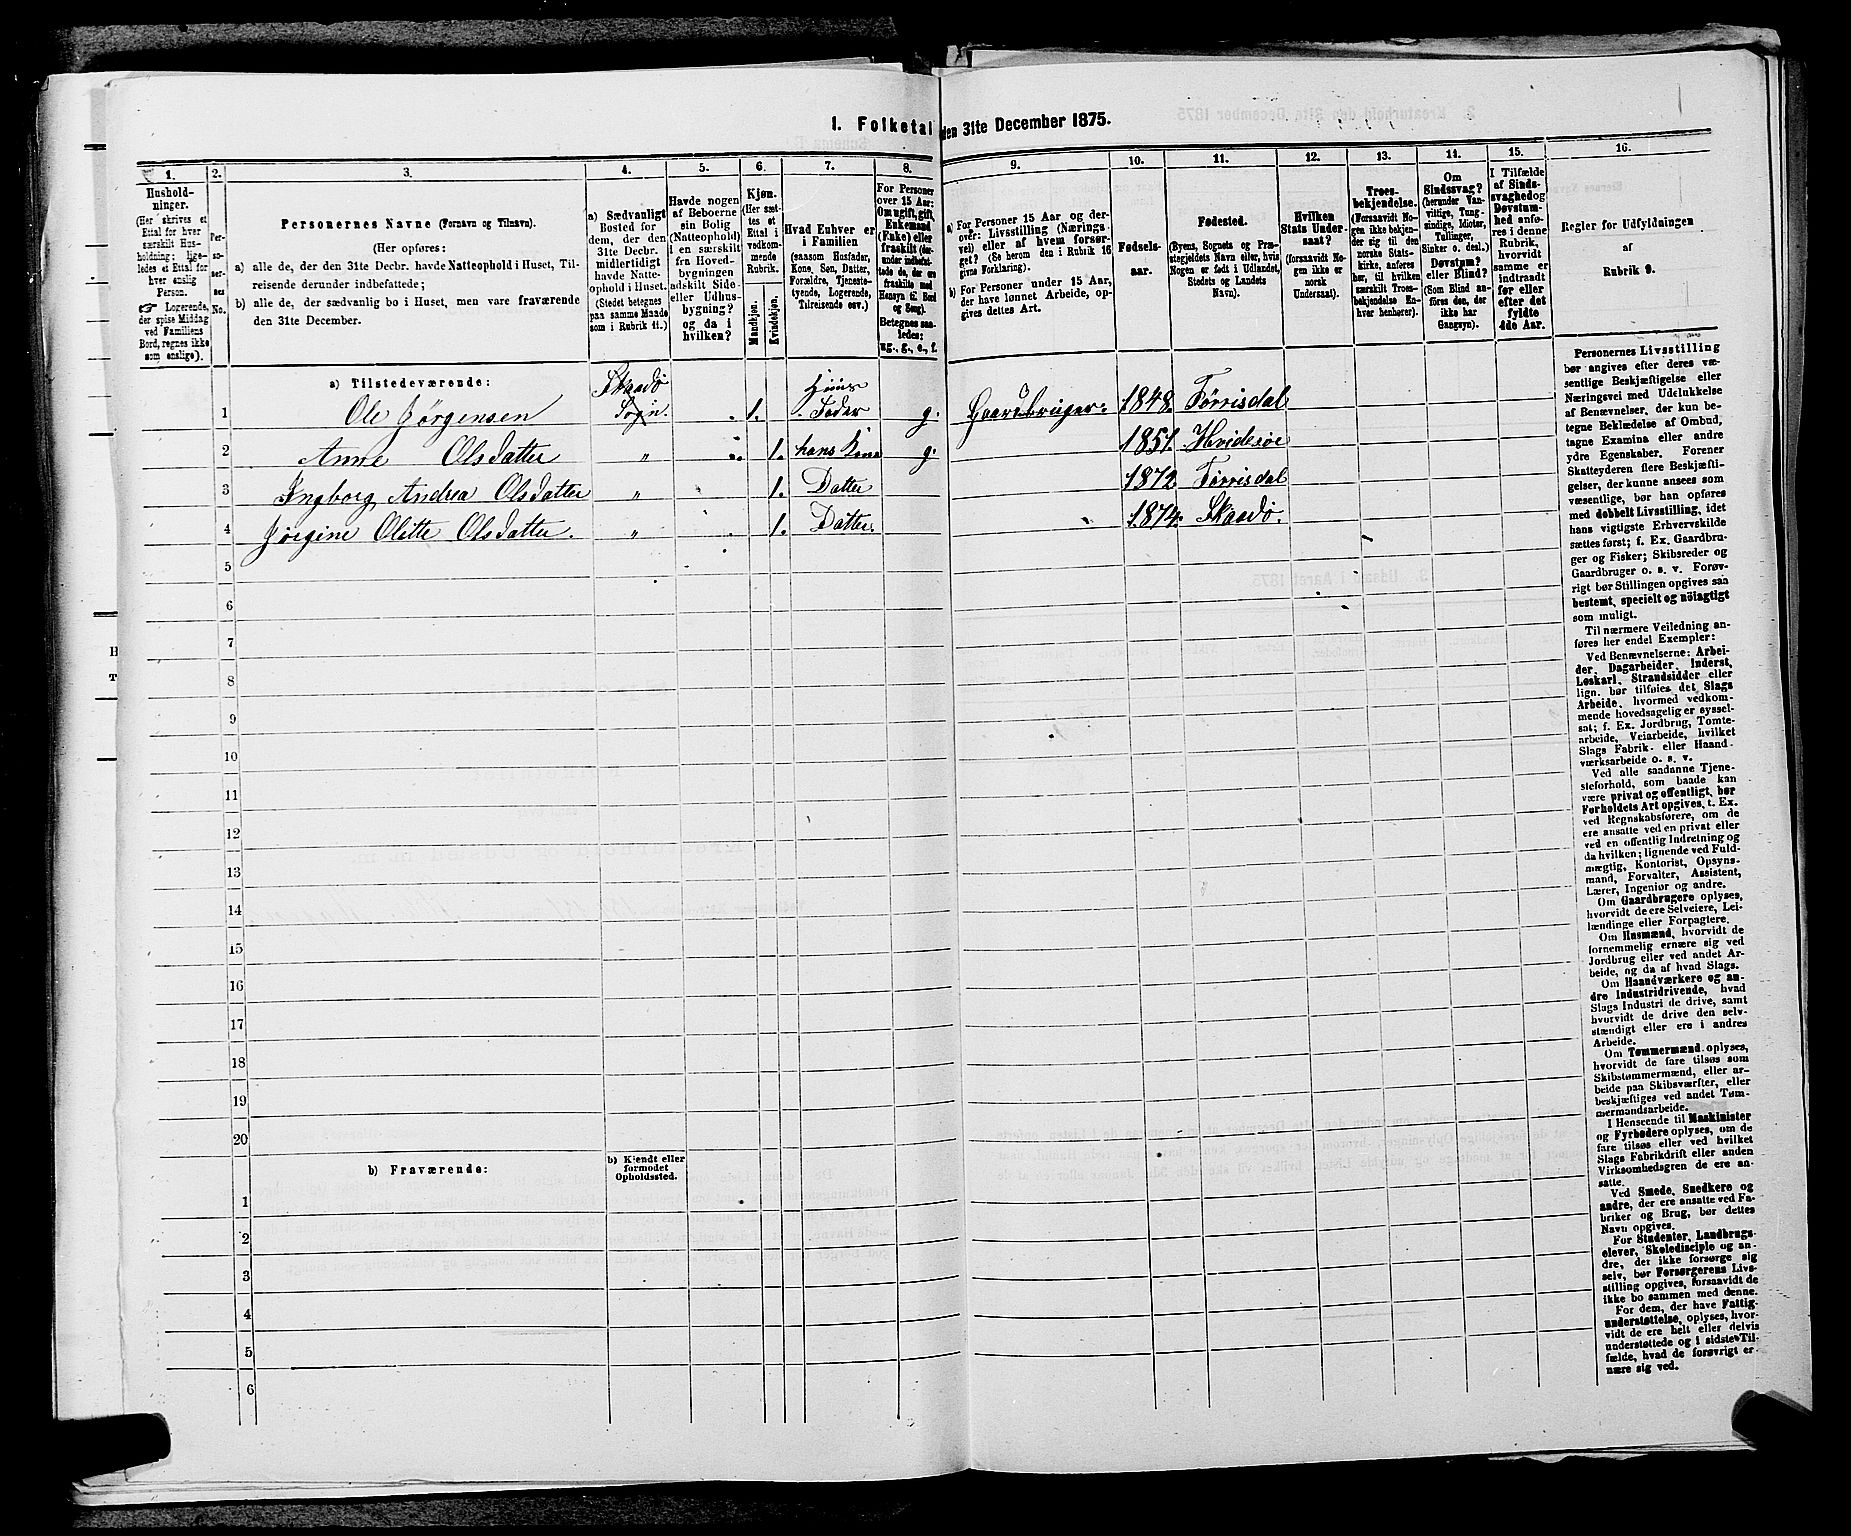 1. Folketal den 31te December 1875.
1.
2.
3.
4.
5.
6.
7.
8.
9.
10.
11.
12.
13.
14.
15.
16.
Hushold-
ninger.
(Her skrives et
Ettal for hver
særskilt Hus-
holdning; lige-
ledes et Ettal for
hver enslig
Person.
☞ Logerende,
der spise Middag
ved Familiens
Bord, regnes ikke
som enslige).
Per-
so-
ner-
nes
No.
Personernes Navne (Fornavn og Tilnavn).
(Her opføres:
a) alle de, der den 31te Decbr. havde Natteophold i Huset, Til-
reisende derunder indbefattede;
b) alle de, der sædvanlig bo i Huset, men vare fraværende
den 31te December.
a) Sædvanligt
Bosted for
dem, der den
31te Decbr.
midlertidigt
havde Natte-
ophold i Huset.
(Stedet betegnes
paa samme Maade
som i Rubrik 11.)
Havde nogen
af Beboerne
sin Bolig
(Natteophold)
i en særskilt
fra Hoved-
bygningen
adskilt Side-
eller Udhus-
bygning?
og da i
hvilken?
Kjøn.
(Her sæt-
tes et
Ettal i
vedkom-
mende
Rubrik.
Mandkjøn.
Kvindekjøn.
Hvad Enhver er
i Familien
(saasom Husfader,
Kone, Søn, Datter,
Forældre, Tjeneste-
tyende, Logerende,
Tilreisende osv.)
For Personer
over 15 Aar:
Om ugift, gift,
Enkemand
(Enke) eller
fraskilt
Betegnes saa-
ledes:
ug., g., e., f.
a) For Personer 15 Aar og der-
over: Livsstilling (Nærings-
vei) eller af hvem forsør-
get? (Se herom den i Rubrik 16
givne Forklaring).
b) For Personer under 15 Aar,
der have lønnet Arbeide, op-
gives dettes Art.
Fødsels-
aar.
Fødested.
(Byens, Sognets og Præ-
stegjeldets Navn eller, hvis
Nogen er født i Udlandet,
Stedets og Landets
Navn).
Hvilken
Stats Under-
saat?
(forsaavidt No-
gen ikke er
norsk
Undersaat).
Troes-
bekjendelse.
(Forsaavidt No-
gen ikke bekjen-
der sig til den
norske Stats-
kirke, anføres
her, til hvilken
særskilt Troes-
bekjendelse En-
hver henhører).
Om
Sindssvag?
(herunder Van-
vittige, Tung-
sindige, Idioter,
Tullinger,
Sinker o. desl.)
Døvstum?
eller Blind?
(Som Blind an-
føres den, der
ikke har
Gangsyn).
I Tilfælde
af Sinds-
svaghed og
Døvstum-
hed anfø-
res i denne
Rubrik,
hvorvidt
samme er
indtraadt
før eller
efter det
fyldte
4de Aar.
Regler for Udfyldningen
af
Rubrik 9.
a) Tilstedeværende:
1 Ole Jørgensen Skaadø Sogn. 1. Huus Fader g. Gaardbruger. 1848. Tørrisdal
2 Anne Olsdatter „ 1. hans Kone g. 1851. Hvidesøe
3 Ingborg Andrea Olsdatter „ 1. Datter 1872 Tørrisdal
4 Jørgine Olette Olsdatter. „ 1. Datter. 1874. Skaadø.
5
6
7
8
9
10
11
12
13
14
15
16
17
18
19
20
b) Fraværende:
b) Kjendt eller
formodet
Opholdssted.
1
2
3
4
5
6
Personernes Livsstilling
bør angives efter deres væ-
sentlige Beskjæftigelse eller
Næringsvei med Udelukkelse
af Benævnelser, der kun be-
tegne Beklædelse af Ombud,
tagne Examina eller andre
ydre Egenskaber. Forener
Skatteyderen flere Beskjæfti-
gelser, der kunne ansees som
væsentlige, bør han opføres
med dobbelt Livsstilling, idet
hans vigtigste Erhvervskilde
sættes først; f. Ex. Gaardbru-
ger og Fisker; Skibsreder og
Gaardbruger o. s. v. Forøv-
rigt bør Stillingen opgives saa
bestemt, specielt og nöiagtigt
som muligt.
Til nærmere Veiledning an-
føres her endel Exempler:
Ved Benævnelserne: Arbei-
der, Dagarbeider, Inderst,
Løskarl, Strandsidder eller
lign. bør tilføies det Slags
Arbeide, hvormed vedkom-
mende hovedsagelig er syssel-
sat; f. Ex. Jordbrug, Tomte-
arbeide, Veiarbeide, hvilket
Slags Fabrik- eller Haand-
værksarbeide o. s. v.
Ved alle saadanne Tjene-
steforhold, som baade kan
være privat og offentligt, bør
Forholdets Art opgives, t. Ex.
ved Regnskabsførere, om de
ere ansatte ved en privat eller
ved en offentlig Indretning og
da hvilken; lignende ved Fuld-
mægtig, Kontorist, Opsyns-
mand, Forvalter, Assistent,
Lærer, Ingeniør og andre.
Om Gaardbrugere oplyses,
hvorvidt de ere Selveiere, Lei-
lændinge eller Forpagtere.
Om Husmænd, hvorvidt de
fornemmelig ernære sig ved
Jordbrug eller ved andet Ar-
beide, og da af hvad Slags.
Om Haandværkere og an-
dre Industridrivende, hvad
Slags Industri de drive, samt
hvorvidt de drive den selv-
stændigt eller ere i andres
Arbeide.
Om Tømmermænd oplyses,
hvorvidt de fare tilsøs som
Skibstømmermænd, eller ar-
beide paa Skibsværfter, eller
beskjæftiges ved andet Tøm-
mermandsarbeide.
I Henseende til Maskinister
og Fyrbødere oplyses, om de
fare tilsøs eller ved hvilket
Slags Fabrikdrift eller anden
Virksomhedsgren de ere an-
satte.
Ved Smede, Snedkere og
andre, der ere ansatte ved Fa-
briker og Brug, bør dettes
Navn opgives.
For Studenter, Landbrugs-
elever, Skoledisciple og an-
dre, der ikke forsørge sig
selv, bør Forsørgerens Livs-
stilling opgives, forsaavidt de
ikke bo sammen med denne.
For dem, der have Fattig-
understøttelse, oplyses, hvor-
vidt de ere helt eller delvis
understøttede og i sidste Til-
fælde, hvad de forøvrigt er-
nære sig ved.